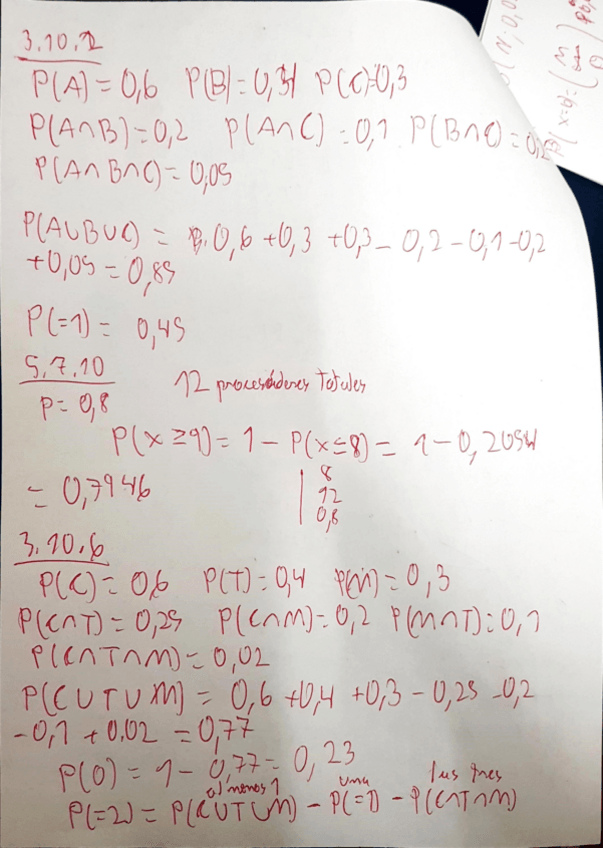 3.10.2
P(A) = 0,6 P(B) = 0,3 P(C) = 0,3
P(A∩B) = 0,2 P(A∩C) = 0,1 P(B∩C) = 0,2
P(A∩B∩C) = 0,05
P(A∪B∪C) = 0,6 + 0,3 + 0,3 - 0,2 - 0,1 - 0,2
+ 0,05 = 0,85
P(=1) = 0,45
5.7.10
12 procesadores totales
p = 0,8
P(x ≥ 9) = 1 - P(x ≤ 8) = 1 - 0,2054
= 0,7946
8
12
0,8
3.10.6
P(C) = 0,6 P(T) = 0,4 P(M) = 0,3
P(C∩T) = 0,25 P(C∩M) = 0,2 P(M∩T) = 0,1
P(C∩T∩M) = 0,02
P(C∪T∪M) = 0,6 + 0,4 + 0,3 - 0,25 - 0,2
- 0,1 + 0.02 = 0,77
P(0) = 1 - 0,77 = 0,23
al menos 1 una las tres
P(=2) = P(C∪T∪M) - P(=1) - P(C∩T∩M)